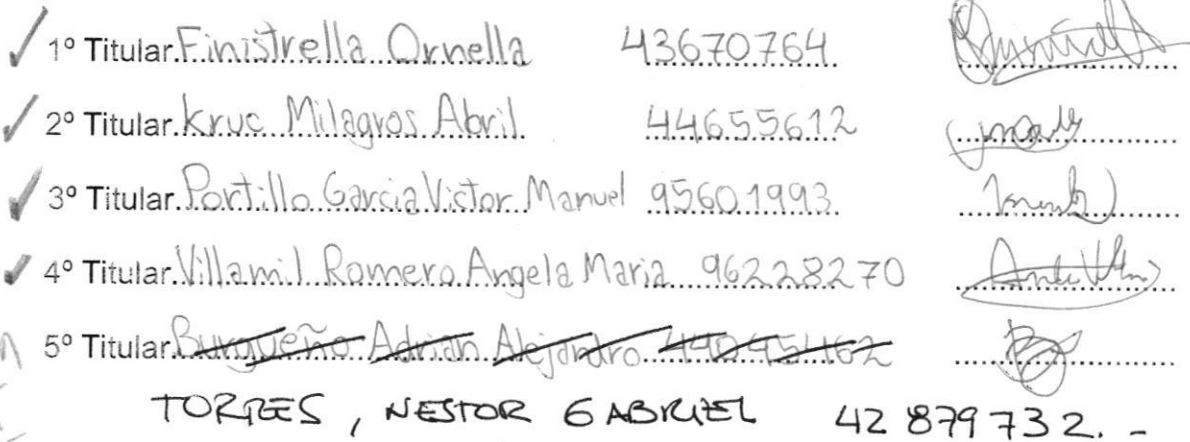 ✓ 1º Titular.Finistrella Ornella 43670764
✓ 2º Titular.Kruc Milagros Abril 44655612
✓ 3º Titular.Portillo Garcia Victor Manuel 95601993
✓ 4º Titular.Villamil Romero Angela Maria 96228270
5º Titular.Burgueño Adrian Alejandro
TORRES, NESTOR GABRIEL 42 879 732. -